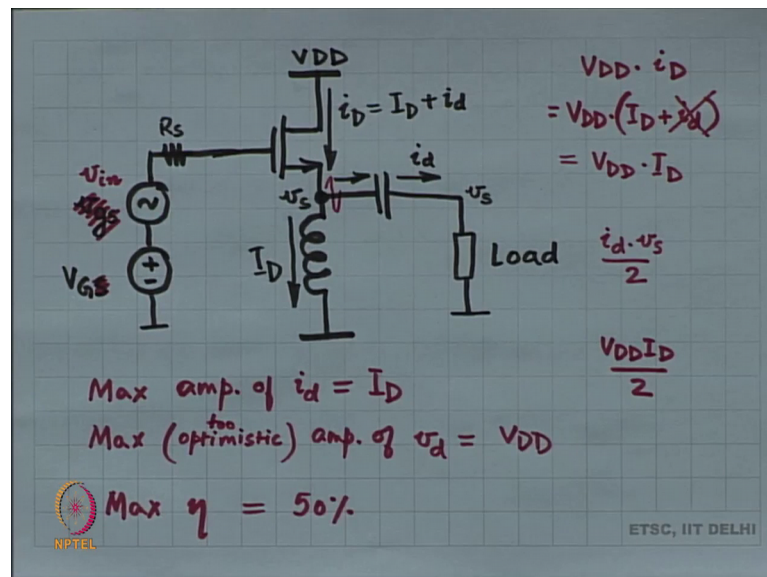 VDD
Rs
i_D = I_D + i_d
v_in
V_G
~
+
-
v_s
i_d
v_s
I_D
Load
V_DD · i_D
= V_DD · (I_D + i_d)
= V_DD · I_D
i_d · v_s
2
V_DD I_D
2
Max amp. of i_d = I_D
too
Max (optimistic) amp. of v_d = V_DD
Max η = 50%
NPTEL
ETSC, IIT DELHI